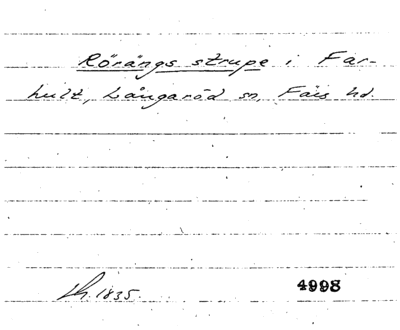 Rörängs strupe i Far-
hult, Långaröd sn, Färs hd.
1835. 4998